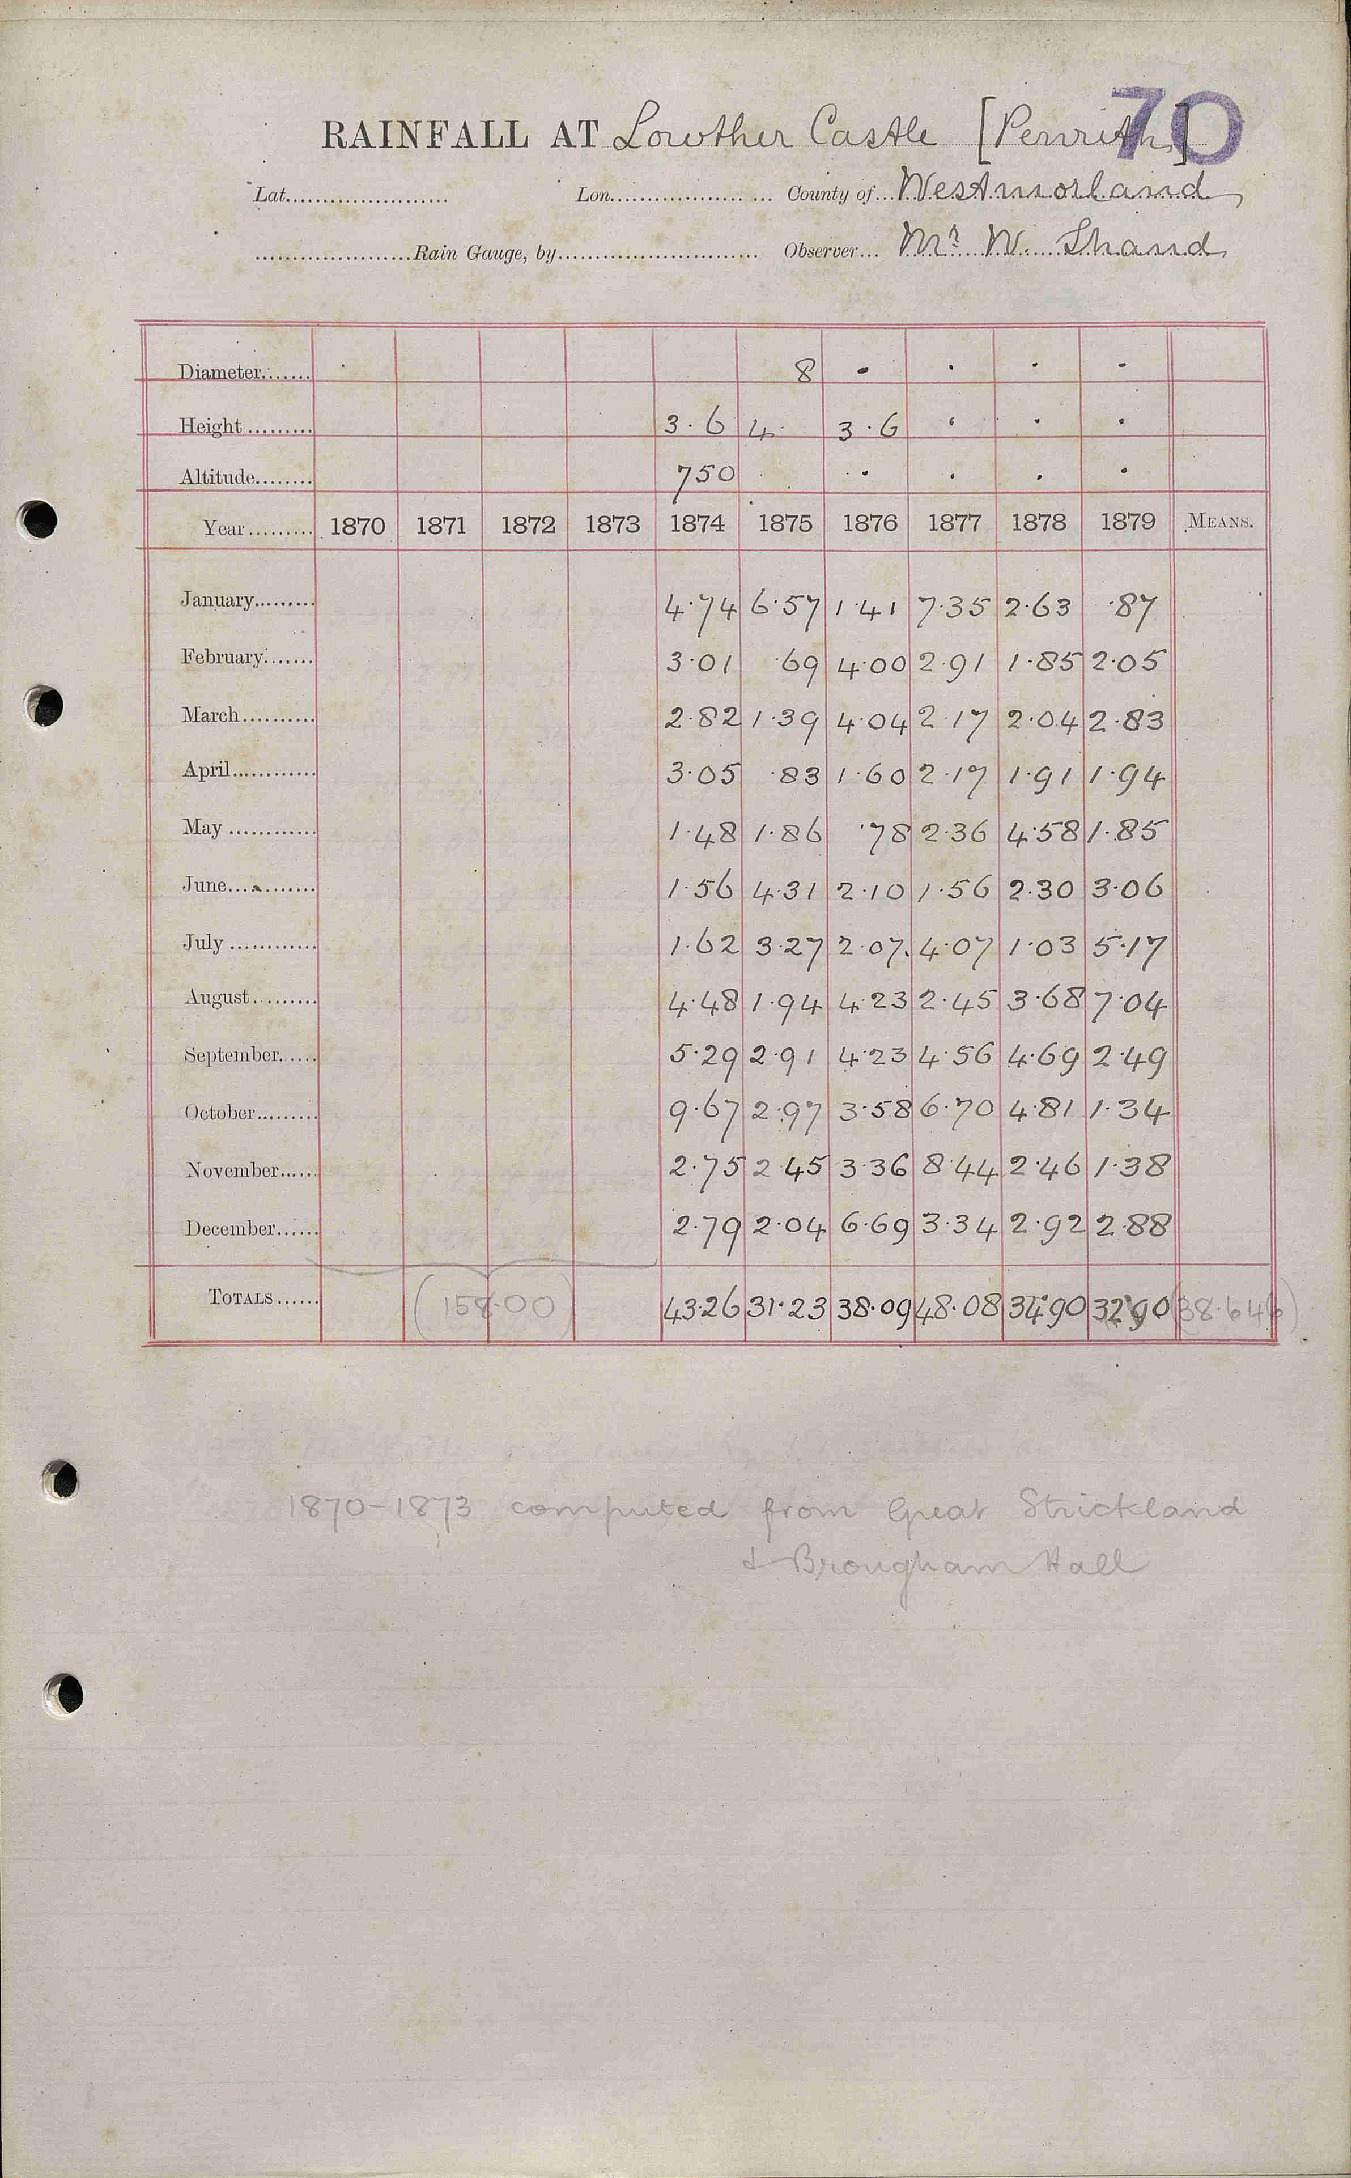 70
RAINFALL AT Lowther Castle [Penrith]
Lat...................... Lon..................... County of...Westmorland
.....................Rain Gauge, by........................... Observer... Mr. W. Shand
Diameter....... 8 · · · ·
Height ......... 3·6 4 3·6 · · ·
Altitude........ 750 · · · · ·
Year......... 1870 1871 1872 1873 1874 1875 1876 1877 1878 1879 MEANS.
January......... 4·74 6·57 1·41 7·35 2·63 ·87
February....... 3·01 ·69 4·00 2·91 1·85 2·05
March.......... 2·82 1·39 4·04 2·17 2·04 2·83
April............ 3·05 ·83 1·60 2·17 1·91 1·94
May ............ 1·48 1·86 ·78 2·36 4·58 1·85
June............ 1·56 4·31 2·10 1·56 2·30 3·06
July ............ 1·62 3·27 2·07 4·07 1·03 5·17
August......... 4·48 1·94 4·23 2·45 3·68 7·04
September...... 5·29 2·91 4·23 4·56 4·69 2·49
October......... 9·67 2·97 3·58 6·70 4·81 1·34
November...... 2·75 2·45 3·36 8·44 2·46 1·38
December...... 2·79 2·04 6·69 3·34 2·92 2·88
TOTALS...... (158·00) 43·26 31·23 38·09 48·08 34·90 32·90 (38·646)
1870-1873 computed from Great Strickland
& Brougham Hall